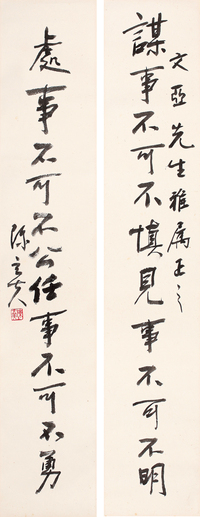 文亞先生雅属正之
謀事不可不慎見事不可不明
處事不可不公任事不可不勇
陳立夫